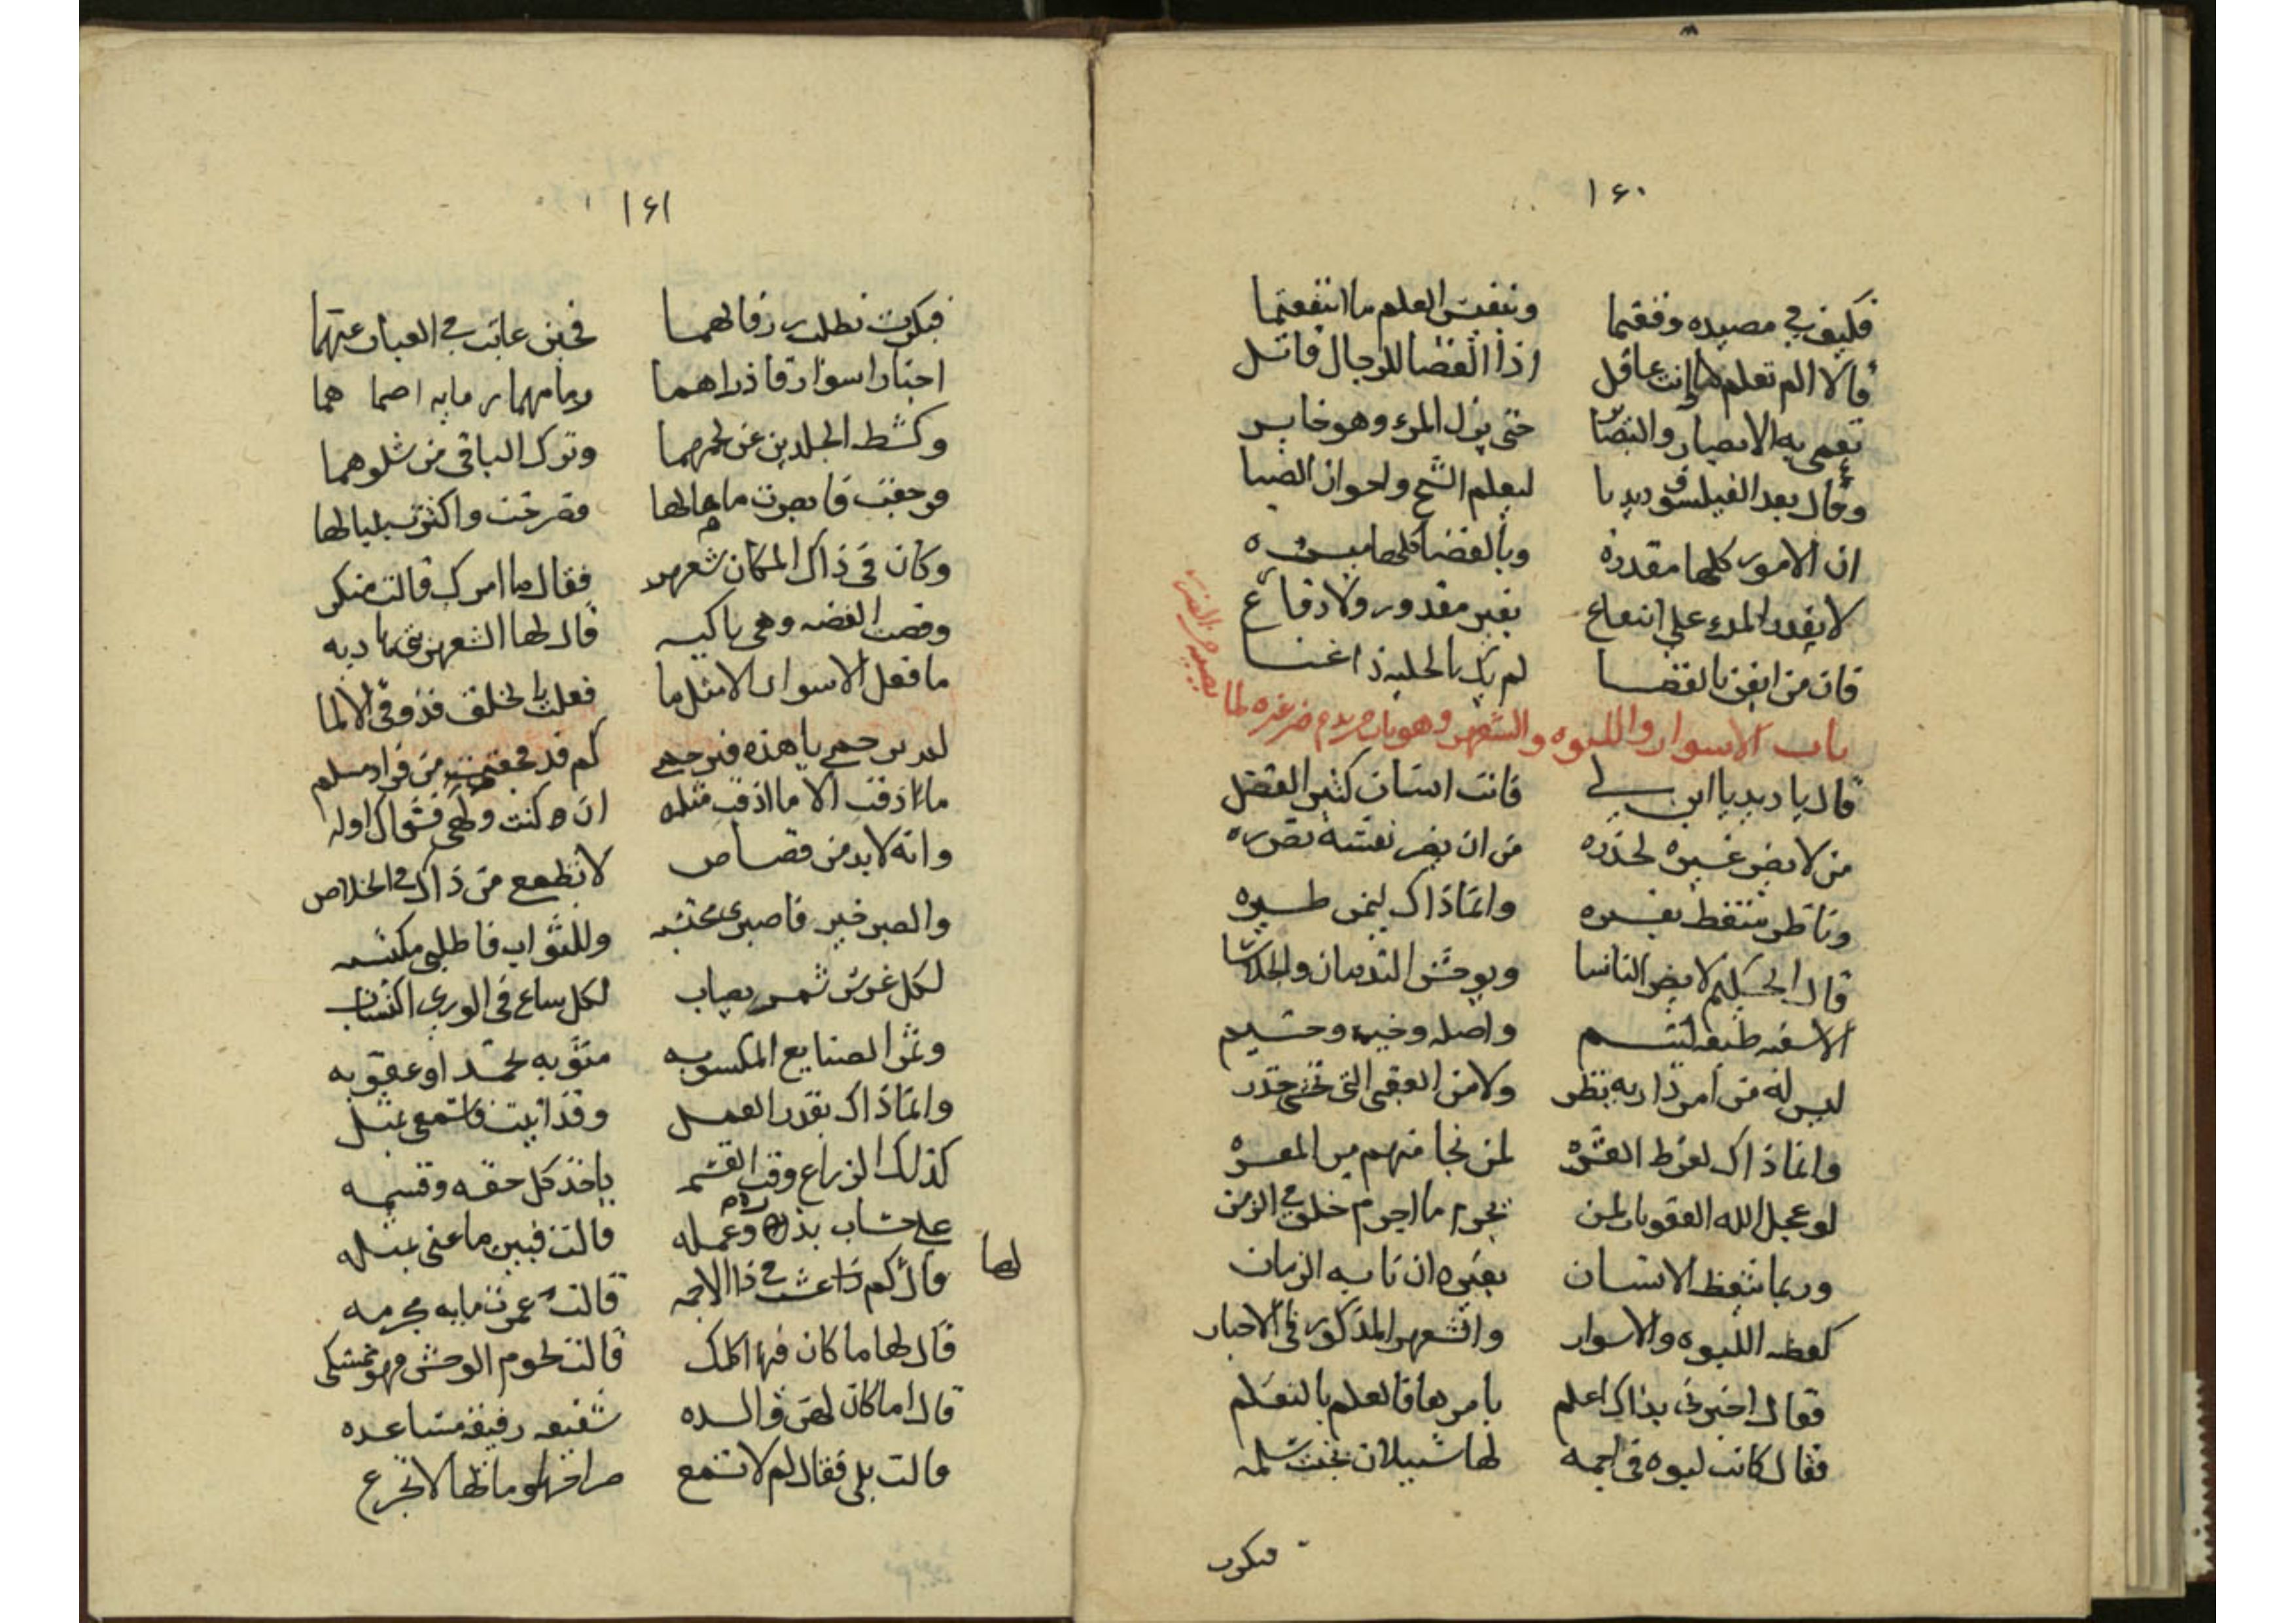 ١٦٠
فكيف في مصيده وقعتما ونفس العلم ما انتفعتما
قالا الم تعلم وانت عاقل اذا القضا للرجال قاتل
تعمى به الابصار والبصاير حتى يزل المرء وهو خابر
وقال بعد الفيلسوف ديدبا ليعلم الشيخ واخوان الصبا
ان الامور كلها مقدره وبالقضا كلها ميسره
لا يقدر المرء على انتفاع بغير مقدور ولا دفاع
فان من ايقن بالقضا لم يك بالحلية ذا غنا
باب الاسوار واللبوه والشعهر وهو باب من يدع ضر غيره لما يصيبه من الضر
قال يا ديدبا ابن لي فانت انسان كثير الفضل
من لا يضر غيره لحذره من ان يضر نفسه بضرره
وناظر متعظ بغيره وانما ذاك ليمن طيره
قال الحكيم لا يضر الناسا ويوحش الندمان والجلاسا
الا سفيه طبعه لئيم واصله وخيمه وخيم
ليس له من امر داريه نظر ولا من العقبى التي تخشى حذر
وانما ذاك لفرط الغره لمن نجا منهم من المعره
لو عجل الله العقوبات لمن يجرم ما اجرم خلق في الزمن
وربما يتعظ الانسان بغيره ان نابه الزمان
كقصه اللبوه والاسوار والشعهر المذكور في الاخبار
فقال اخبرني بذاك اعلم بامرها فالعلم بالتعلم
فقال كانت لبوه في اجمه لها شبيلان بخفت سلمه
فبكرت
١٦١
فبكرت تطلب رزقا لهما فحين غابت في الغياب عنهما
اجتاز اسوار قاذراهما وما مهما رمابه اصماهما
وكشط الجلدين عن لحمهما وترك الباقي من شلوهما
فرجعت فابصرت ما هالها فصرخت واكثرت بلبالها
وكان في ذاك المكان شعهر فقال ما امرك قالت منكر
وقصت القصه وهي باكيه قال لها الشعهر
ما فعل الاسوار الا مثل ما فعلت بالخلق فذوقي الالما
لم ترحمي يا هذه فترحمي كم قد فجعت من فؤاد مسلم
ما اذقت الا ما اذقت مثله
وانه لا بد من قصاص لا تطمعي من ذاك في الخلاص
والصبر خير فاصبري محتسبه وللثواب فاطلبي مكتسبه
لكل غرس ثمر يصاب لكل ساع في الورى اكتساب
وثمر الصنايع المكسوبه مثوبه تحمد او عقوبه
وانما ذاك بقدر العمل وقد اتيت فاسمعي بمثل
كذلك الزراع وقت القسمه ياخذ كل حقه وقسمه
على حساب بذره وعمله قالت فبين ما عنى بمثله
قال كم عشت في ذا الاجمه لها قالت عمرت مايه مجرمه
قال لها ما كان فيها اكلك قالت لحوم الوحش
قال اما كان لهن والده شفيقه رفيقه مساعده
قالت بلى فقال لم لا تسمع صراخها وما لها لا تجزع